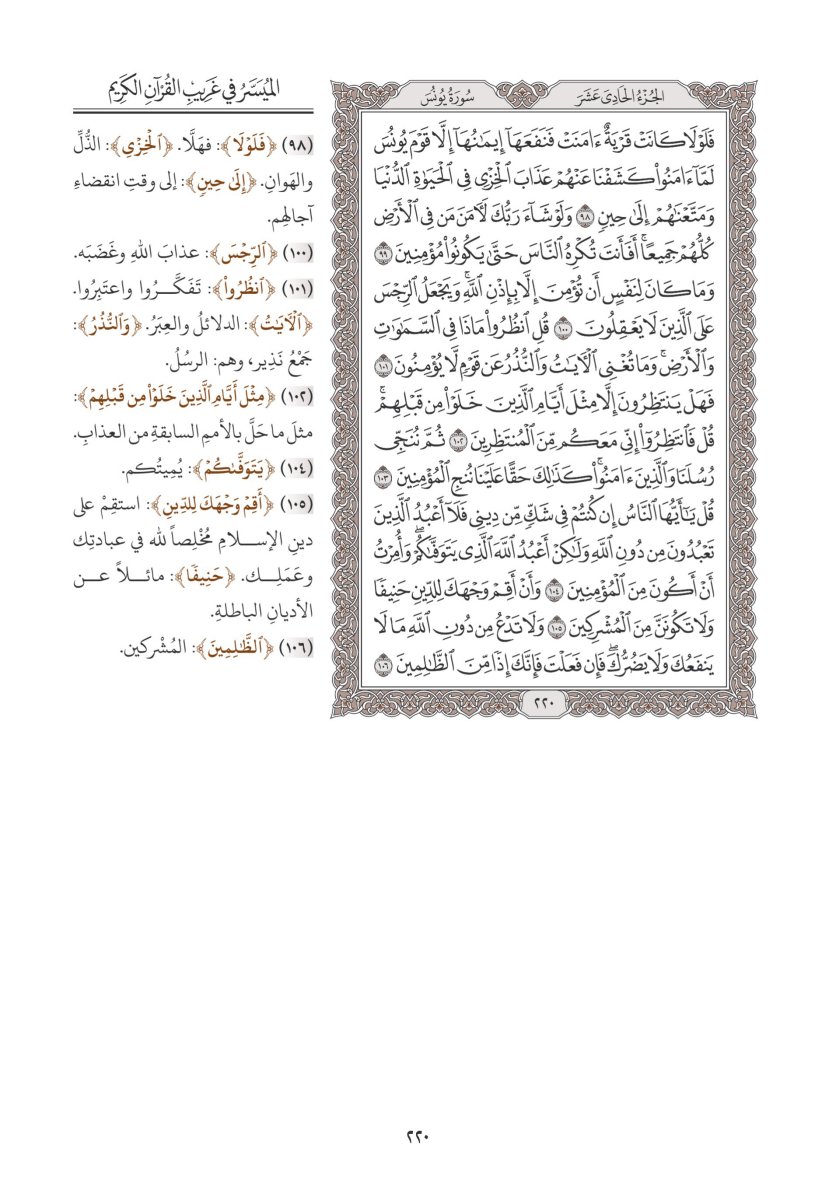 الجُزْءُ الحَادِي عَشَرَ
سُورَةُ يُونُسَ
فَلَوۡلَا كَانَتۡ قَرۡيَةٌ ءَامَنَتۡ فَنَفَعَهَآ إِيمَٰنُهَآ إِلَّا قَوۡمَ يُونُسَ
لَمَّآ ءَامَنُواْ كَشَفۡنَا عَنۡهُمۡ عَذَابَ ٱلۡخِزۡيِ فِي ٱلۡحَيَوٰةِ ٱلدُّنۡيَا
وَمَتَّعۡنَٰهُمۡ إِلَىٰ حِينٖ ٩٨ وَلَوۡ شَآءَ رَبُّكَ لَأٓمَنَ مَن فِي ٱلۡأَرۡضِ
كُلُّهُمۡ جَمِيعًاۚ أَفَأَنتَ تُكۡرِهُ ٱلنَّاسَ حَتَّىٰ يَكُونُواْ مُؤۡمِنِينَ ٩٩
وَمَا كَانَ لِنَفۡسٍ أَن تُؤۡمِنَ إِلَّا بِإِذۡنِ ٱللَّهِۚ وَيَجۡعَلُ ٱلرِّجۡسَ
عَلَى ٱلَّذِينَ لَا يَعۡقِلُونَ ١٠٠ قُلِ ٱنظُرُواْ مَاذَا فِي ٱلسَّمَٰوَٰتِ
وَٱلۡأَرۡضِۚ وَمَا تُغۡنِي ٱلۡأٓيَٰتُ وَٱلنُّذُرُ عَن قَوۡمٖ لَّا يُؤۡمِنُونَ ١٠١
فَهَلۡ يَنتَظِرُونَ إِلَّا مِثۡلَ أَيَّامِ ٱلَّذِينَ خَلَوۡاْ مِن قَبۡلِهِمۡۚ
قُلۡ فَٱنتَظِرُوٓاْ إِنِّي مَعَكُم مِّنَ ٱلۡمُنتَظِرِينَ ١٠٢ ثُمَّ نُنَجِّي
رُسُلَنَا وَٱلَّذِينَ ءَامَنُواْۚ كَذَٰلِكَ حَقًّا عَلَيۡنَا نُنجِ ٱلۡمُؤۡمِنِينَ ١٠٣
قُلۡ يَٰٓأَيُّهَا ٱلنَّاسُ إِن كُنتُمۡ فِي شَكّٖ مِّن دِينِي فَلَآ أَعۡبُدُ ٱلَّذِينَ
تَعۡبُدُونَ مِن دُونِ ٱللَّهِ وَلَٰكِنۡ أَعۡبُدُ ٱللَّهَ ٱلَّذِي يَتَوَفَّىٰكُمۡۖ وَأُمِرۡتُ
أَنۡ أَكُونَ مِنَ ٱلۡمُؤۡمِنِينَ ١٠٤ وَأَنۡ أَقِمۡ وَجۡهَكَ لِلدِّينِ حَنِيفٗا
وَلَا تَكُونَنَّ مِنَ ٱلۡمُشۡرِكِينَ ١٠٥ وَلَا تَدۡعُ مِن دُونِ ٱللَّهِ مَا لَا
يَنفَعُكَ وَلَا يَضُرُّكَۖ فَإِن فَعَلۡتَ فَإِنَّكَ إِذٗا مِّنَ ٱلظَّٰلِمِينَ ١٠٦
٢٢٠
المُيَسَّرُ في غَرِيبِ القُرْآنِ الكَرِيم
(٩٨) ﴿فَلَوۡلَا﴾: فهلَّا. ﴿ٱلۡخِزۡيِ﴾: الذُّلِّ
والهَوانِ. ﴿إِلَىٰ حِينٖ﴾: إلى وقتِ انقضاءِ
آجالِهِم.
(١٠٠) ﴿ٱلرِّجۡسَ﴾: عذابَ اللهِ وغَضَبَه.
(١٠١) ﴿ٱنظُرُواْ﴾: تَفَكَّرُوا واعتَبِرُوا.
﴿ٱلۡأٓيَٰتُ﴾: الدلائلُ والعِبَرُ. ﴿وَٱلنُّذُرُ﴾:
جَمْعُ نَذِير، وهم: الرسُلُ.
(١٠٢) ﴿مِثۡلَ أَيَّامِ ٱلَّذِينَ خَلَوۡاْ مِن قَبۡلِهِمۡ﴾:
مثلَ ما حَلَّ بالأممِ السابقةِ من العذابِ.
(١٠٤) ﴿يَتَوَفَّىٰكُمۡ﴾: يُمِيتُكم.
(١٠٥) ﴿أَقِمۡ وَجۡهَكَ لِلدِّينِ﴾: استقِمْ على
دينِ الإسلامِ مُخْلِصاً لله في عبادتِك
وعَمَلِك. ﴿حَنِيفٗا﴾: مائلاً عن
الأديانِ الباطلةِ.
(١٠٦) ﴿ٱلظَّٰلِمِينَ﴾: المُشْركين.
٢٢٠